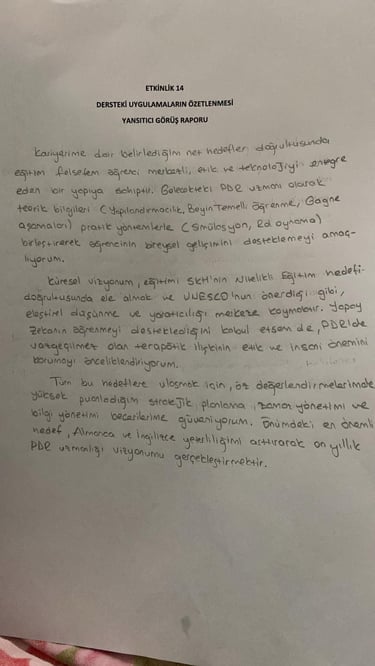 ETKİNLİK 14
DERSTEKİ UYGULAMALARIN ÖZETLENMESİ
YANSITICI GÖRÜŞ RAPORU
Kariyerime dair belirlediğim net hedefler doğrultusunda
eğitim felsefem öğrenci merkezli, etik ve teknolojiyi entegre
eden bir yapıya sahiptir. Gelecekteki PDR uzmanı olarak
teorik bilgileri (Yapılandırmacılık, Beyin Temelli Öğrenme, Gagne
aşamaları) pratik yöntemlerle (Simülasyon, Rol oynama)
birleştirerek öğrencinin bireysel gelişimini desteklemeyi amaç-
lıyorum.
Küresel vizyonum, eğitimi SKH'nin Nitelikli Eğitim hedefi-
doğrultusunda ele almak ve UNESCO'nun önerdiği gibi,
eleştirel düşünme ve yaratıcılığı merkeze koymaktır. Yapay
zekanın öğrenmeyi desteklediğini kabul etsem de, PDR'de
vazgeçilmez olan terapötik ilişkinin etik ve insani önemini
korumayı önceliklendiriyorum.
Tüm bu hedeflere ulaşmak için, öz değerlendirmelerimde
yüksek puanladığım stratejik planlama, zaman yönetimi ve
bilgi yönetimi becerilerime güveniyorum. Önümdeki en önemli
hedef, Almanca ve İngilizce yeterliliğimi arttırarak on yıllık
PDR uzmanlığı vizyonumu gerçekleştirmektir.